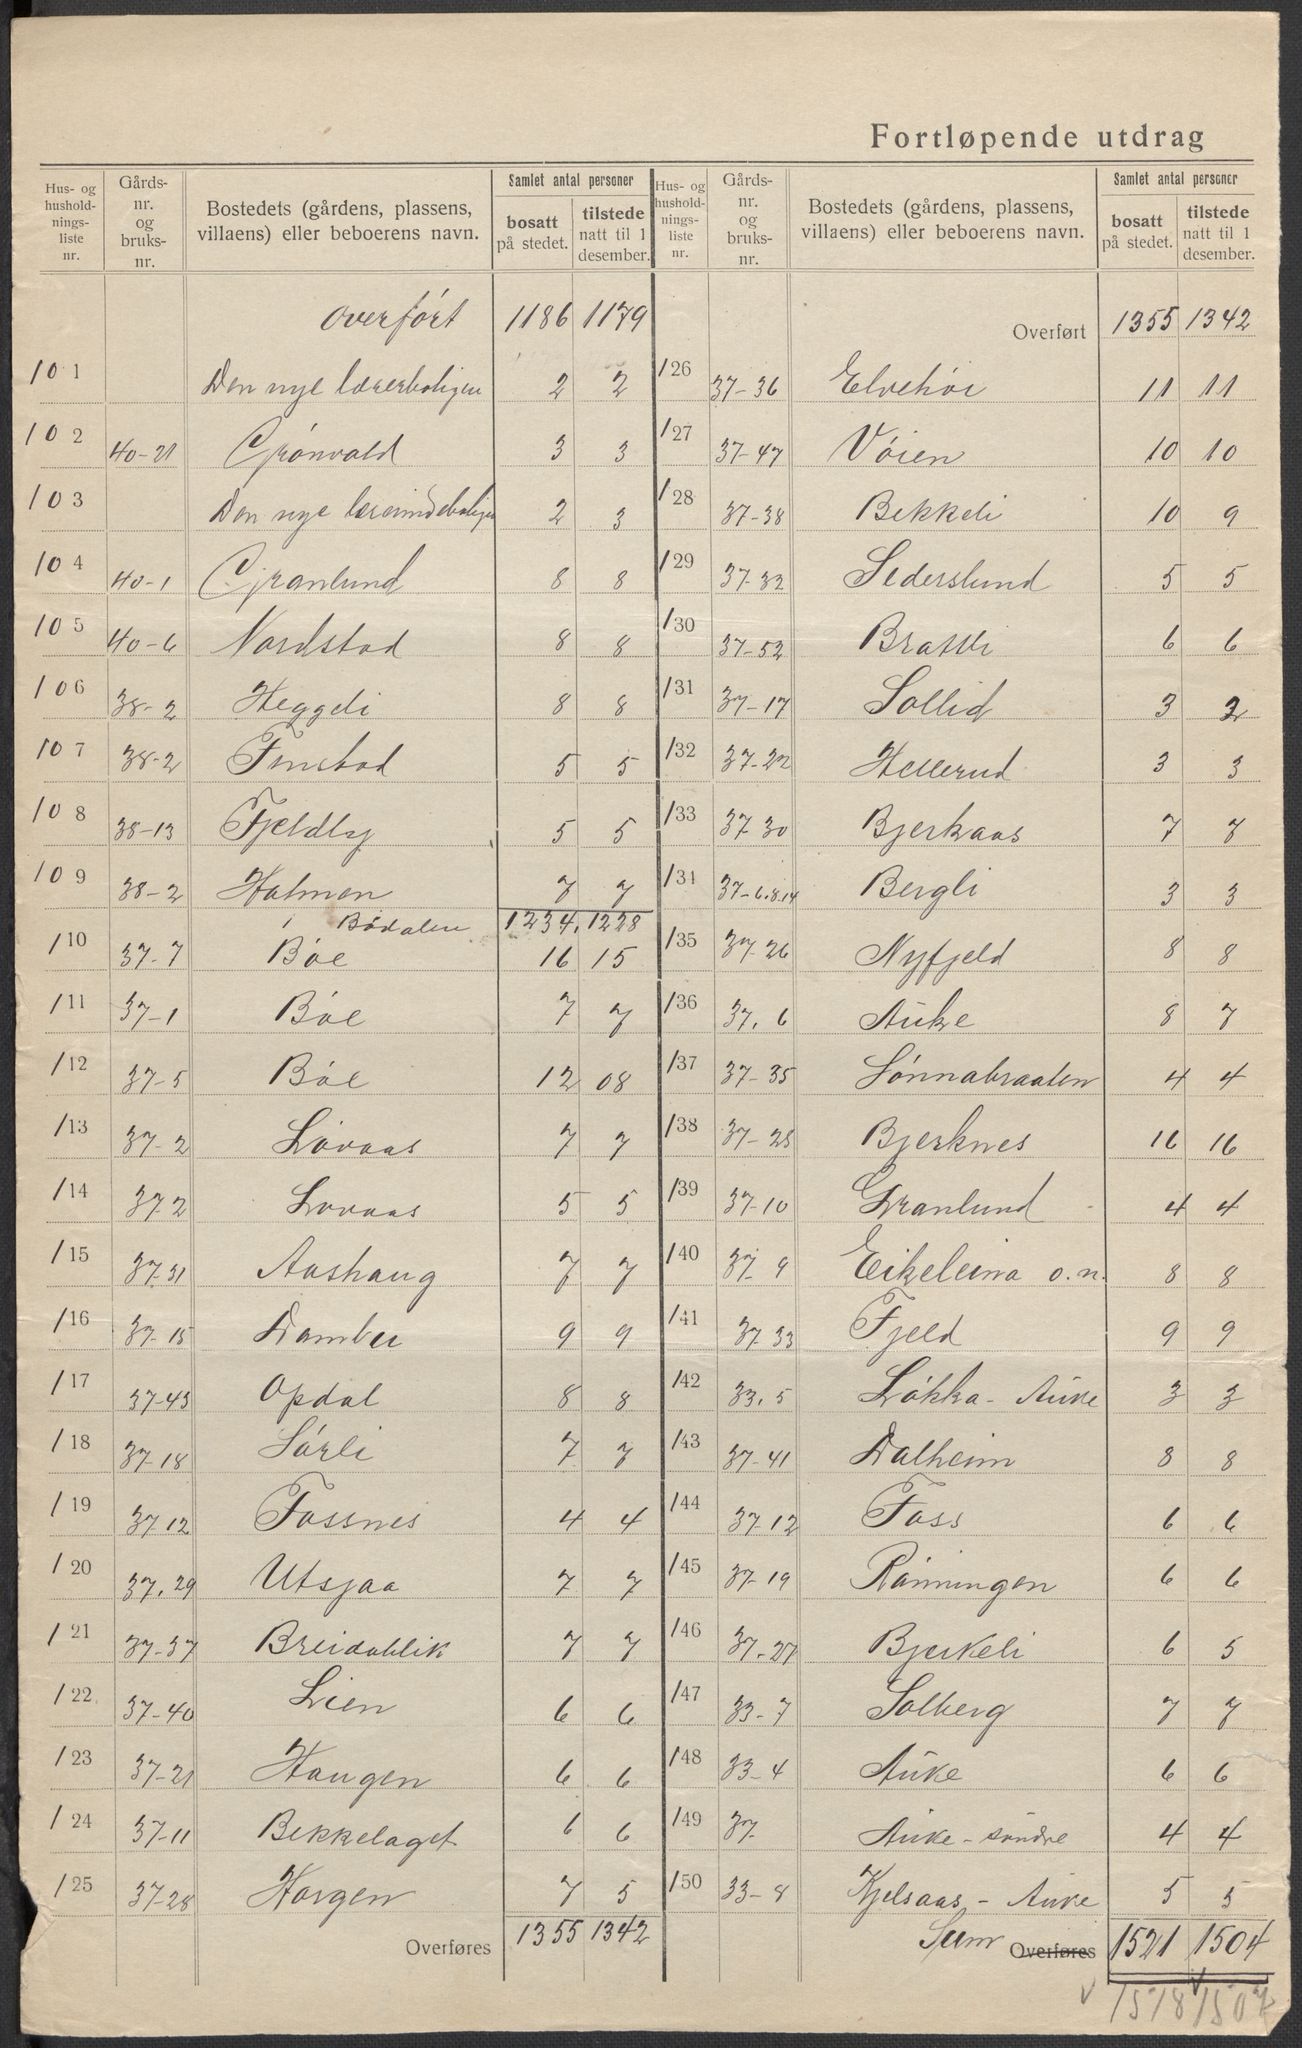 Fortløpende utdrag
Hus- og husholdningsliste nr.
Gårdsnr. og bruksnr.
Bostedets (gårdens, plassens, villaens) eller beboerens navn.
Samlet antal personer
bosatt på stedet.
tilstede natt til 1 desember.
overført 1186 1179
101 Den nye lærerboligen 2 2
102 40-21 Grönvold 3 3
103 Den nye lærerindeboligen 2 3
104 40-1 Granlund 8 8
105 40-6 Nordstad 8 8
106 38-2 Heggeli 8 8
107 38-2 Finstad 5 5
108 38-13 Fjeldby 5 5
109 38-2 Holmen 7 7
i Bödalen 1234. 1228
110 37-7 Böe 16 15
111 37-1 Böe 7 7
112 37-5 Böe 12 08
113 37-2 Lövaas 7 7
114 37 2 Lövaas 5 5
115 37-31 Aashaug 7 7
116 37-15 Dambu 9 9
117 37-43 Opdal 8 8
118 37-18 Sörli 7 7
119 37-12 Fossnes 4 4
120 37.29 Utsjaa 7 7
121 37-37 Breidablik 7 7
122 37-40 Lien 6 6
123 37-21 Haugen 6 6
124 37-11 Bekkelaget 6 6
125 37-28 Horgen 7 5
Overføres 1355 1342
Hus- og husholdningsliste nr.
Gårdsnr. og bruksnr.
Bostedets (gårdens, plassens, villaens) eller beboerens navn.
Samlet antal personer
bosatt på stedet.
tilstede natt til 1 desember.
Overført 1355 1342
126 37-36 Elvehöi 11 11
127 37-47 Vöien 10 10
128 37-38 Bekkeli 10 9
129 37-32 Sederslund 5 5
130 37-52 Bratli 6 6
131 37-17 Sollid 3 2
132 37-22 Hellerud 3 3
133 37 30 Bjerkaas 7 7
134 37-6.8.14 Bergli 3 3
135 37-26 Nyfjeld 8 8
136 37.6 Auke 8 7
137 37-35 Sönnabraaten 4 4
138 37-25 Bjerknes 16 16
139 37-10 Granlund 4 4
140 37-9 Eikeleina o.n. 8 8
141 37 33 Fjeld 9 9
142 33.5 Lökka - Auke 3 3
143 37-41 Dalheim 8 8
144 37-12 Foss 6 6
145 37-19 Rönningen 6 6
146 37-27 Bjerkeli 6 5
147 33-7 Solberg 7 7
148 33-4 Auke 6 6
149 37- Auke - söndre 4 4
150 33-8 Kjelsaas - Auke 5 5
Sum Overføres 1521 1504
1518 1507